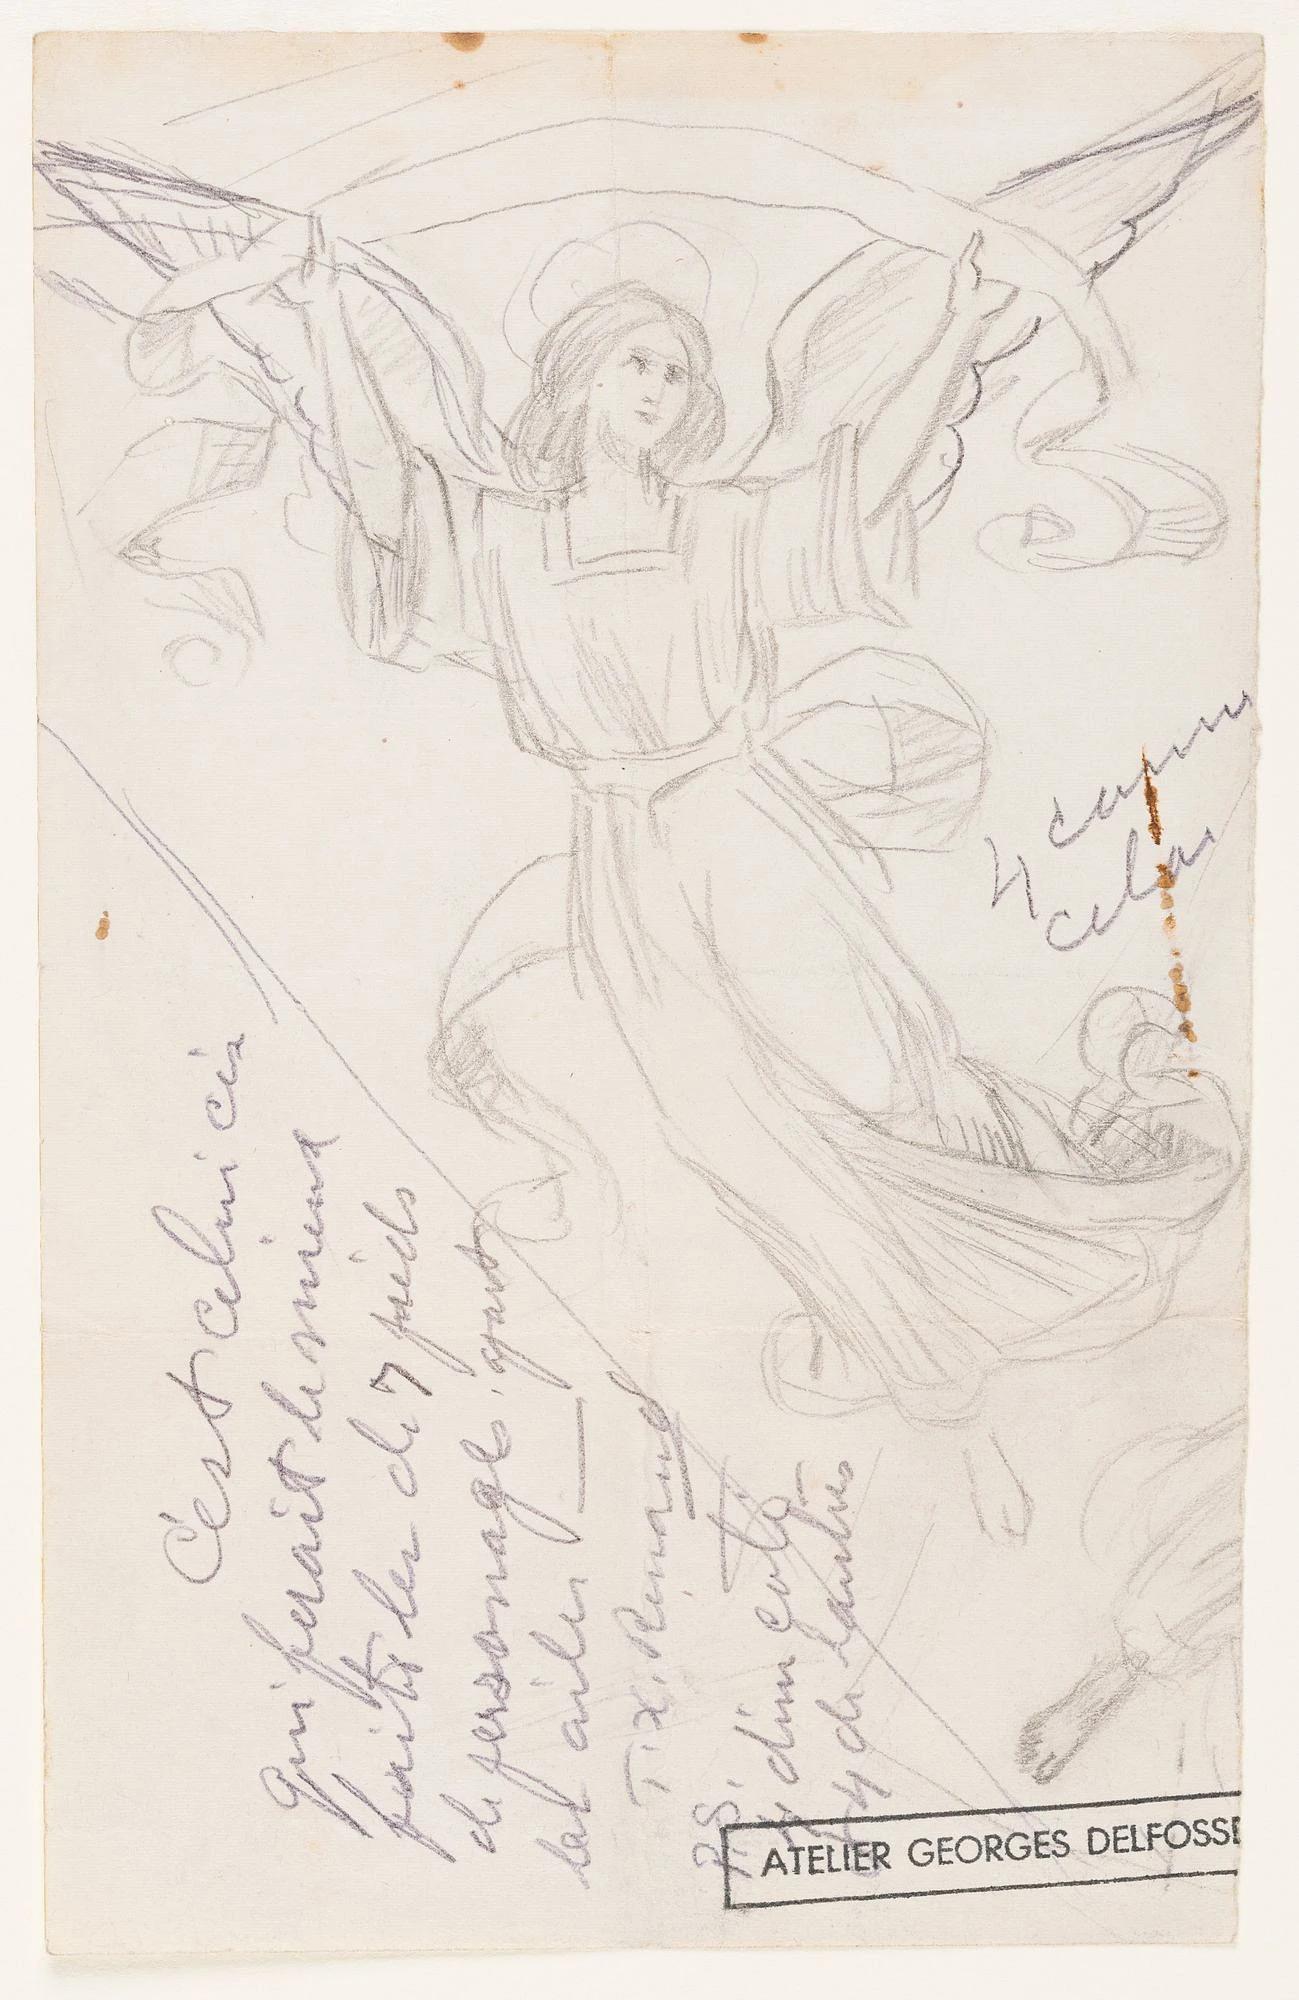 C'est celui ci
qui ferait le mieux
fait les de 7 pieds
de personnage, ajout
les ailes
T. X. Renaud
P.S.
4 d'un coté
4 de l'autre
4 comme
cela
ATELIER GEORGES DELFOSSE